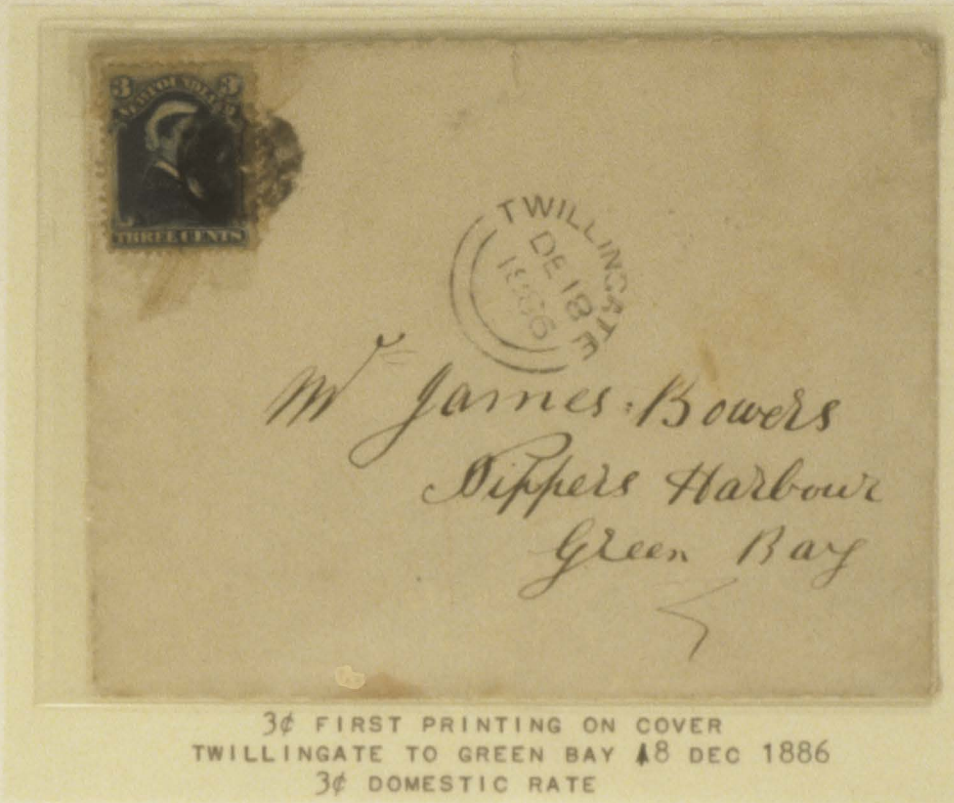 3 3
NEWFOUNDLAND
THREE CENTS
TWILLINGATE
DE 18
1886
Mr James Bowers
Nippers Harbour
Green Bay
3¢ FIRST PRINTING ON COVER
TWILLINGATE TO GREEN BAY 18 DEC 1886
3¢ DOMESTIC RATE